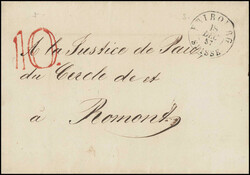 FRIBOURG
SUISSE
10.
A la Justice de Paix
du Cercle de et
à Romont